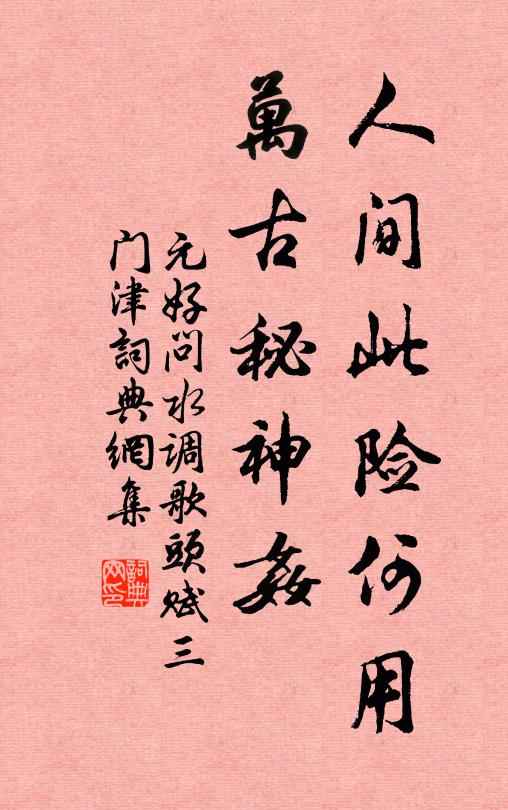 人间此险何用
萬古秘神姦
元好问水调歌頭赋三
门津詞典網集
詞典
网印